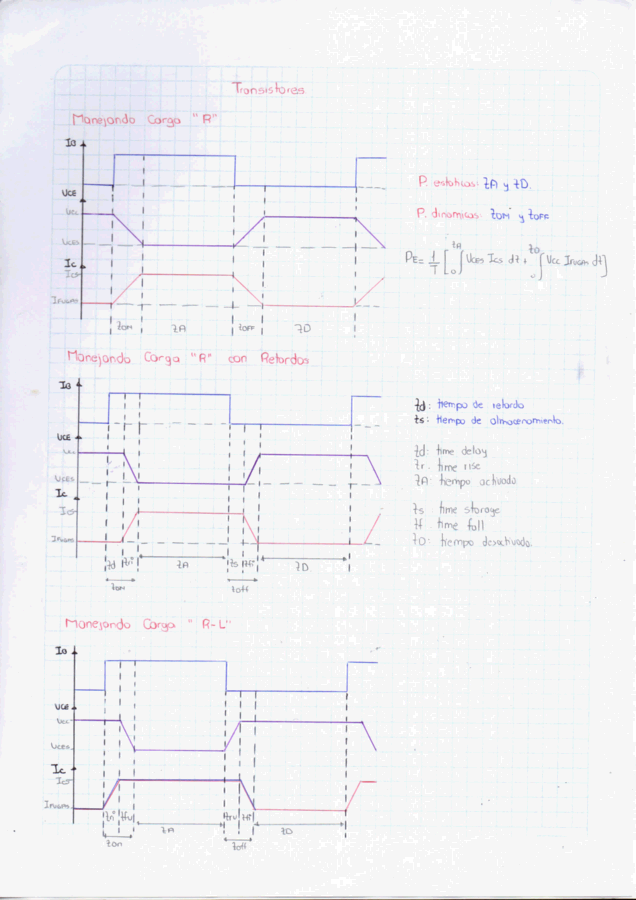 Transistores
Manejando Carga "R"
IB
VCE
Vcc
VCES
Ic
Ics
tON tA tOFF tD
P. estaticas: tA y tD.
P. dinamicas: tON y tOFF
PE = 1/T [ 0∫tA VCES Ics dt + 0∫tD Vcc dt ]
Manejando Carga "R" con Retardos
IB
VCE
Vcc
VCES
Ic
Ics
td tri tA ts tfi tD
ton toff
td: tiempo de retardo
ts: tiempo de almacenamiento.
td: time delay
tr: time rise
tA: tiempo activado
ts time storage
tf time fall
tD: tiempo desactivado.
Manejando Carga "R-L"
IB
VCE
Vcc
VCES
Ic
Ics
tri tfv tA trv tfi tD
ton toff